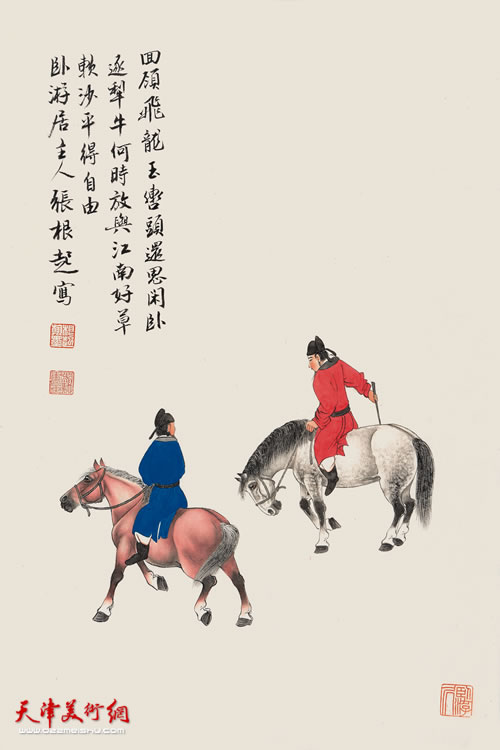 囬頋飛龍玉轡頭還思閑卧
逐犁牛何時放與江南好草
軟沙平得自由
卧游居主人張根起寫
天津美術網
www.022meishu.com